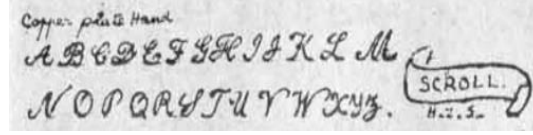 Copper plate Hand
A B C D E F G H I J K L M
N O P Q R S T U V W X Y Z.
SCROLL.
H.I.S.